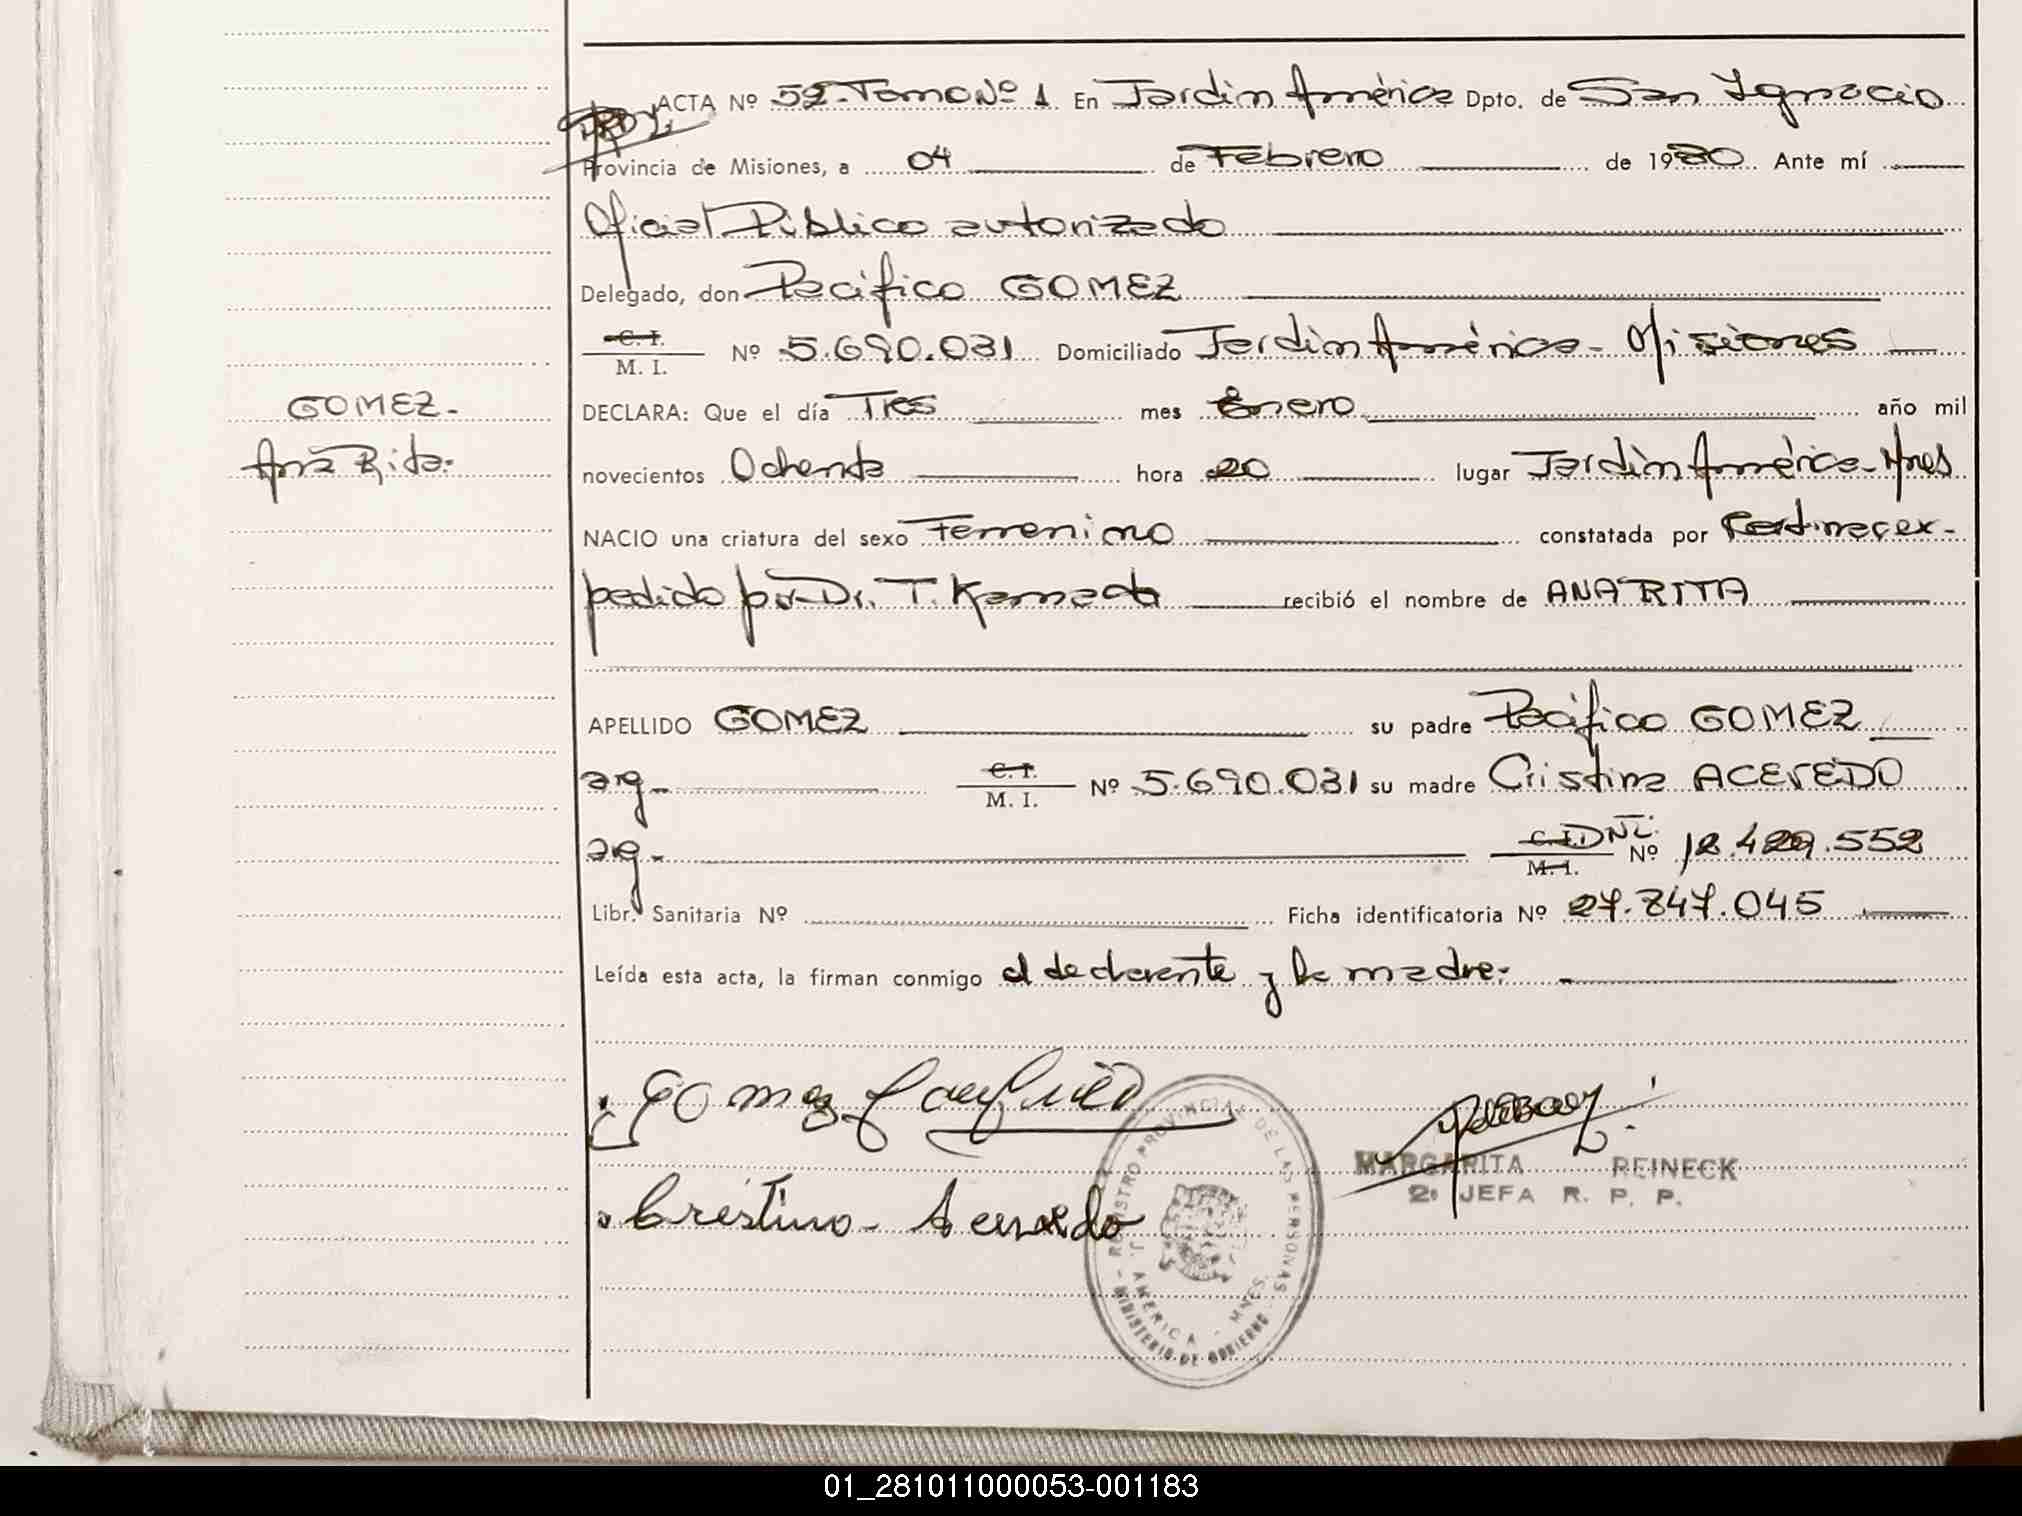 ACTA Nº 52. Tomo Nº 1. En Jardin América Dpto. de San Ignacio
Provincia de Misiones, a 04 de Febrero de 1980. Ante mí
Oficial Público autorizado
Delegado, don Pacifico GOMEZ
C. I.
M. I. Nº 5.690.031 Domiciliado Jardin América - Misiones
GOMEZ.
DECLARA: Que el día Tres mes Enero año mil
Ana Rita.
novecientos Ochenta hora 20 lugar Jardin América - Mnes
NACIO una criatura del sexo Femenino constatada por Certif. nac. ex-
pedido por Dr. T. Kamada recibió el nombre de ANA RITA
APELLIDO GOMEZ su padre Pacifico GOMEZ
arg. C. I.
M. I. Nº 5.690.031 su madre Cristina ACEVEDO
arg. C. I. DNI.
M. I. Nº 12.429.552
Libr. Sanitaria Nº Ficha identificatoria Nº 27.847.045
Leída esta acta, la firman conmigo el declarante y la madre.
Gomez Pacifico
Cristina Acevedo
REGISTRO PROVINCIAL DE LAS PERSONAS
J. AMERICA - MNES.
MINISTERIO DE GOBIERNO
MARGARITA REINECK
2º JEFA R. P. P.
01_281011000053-001183